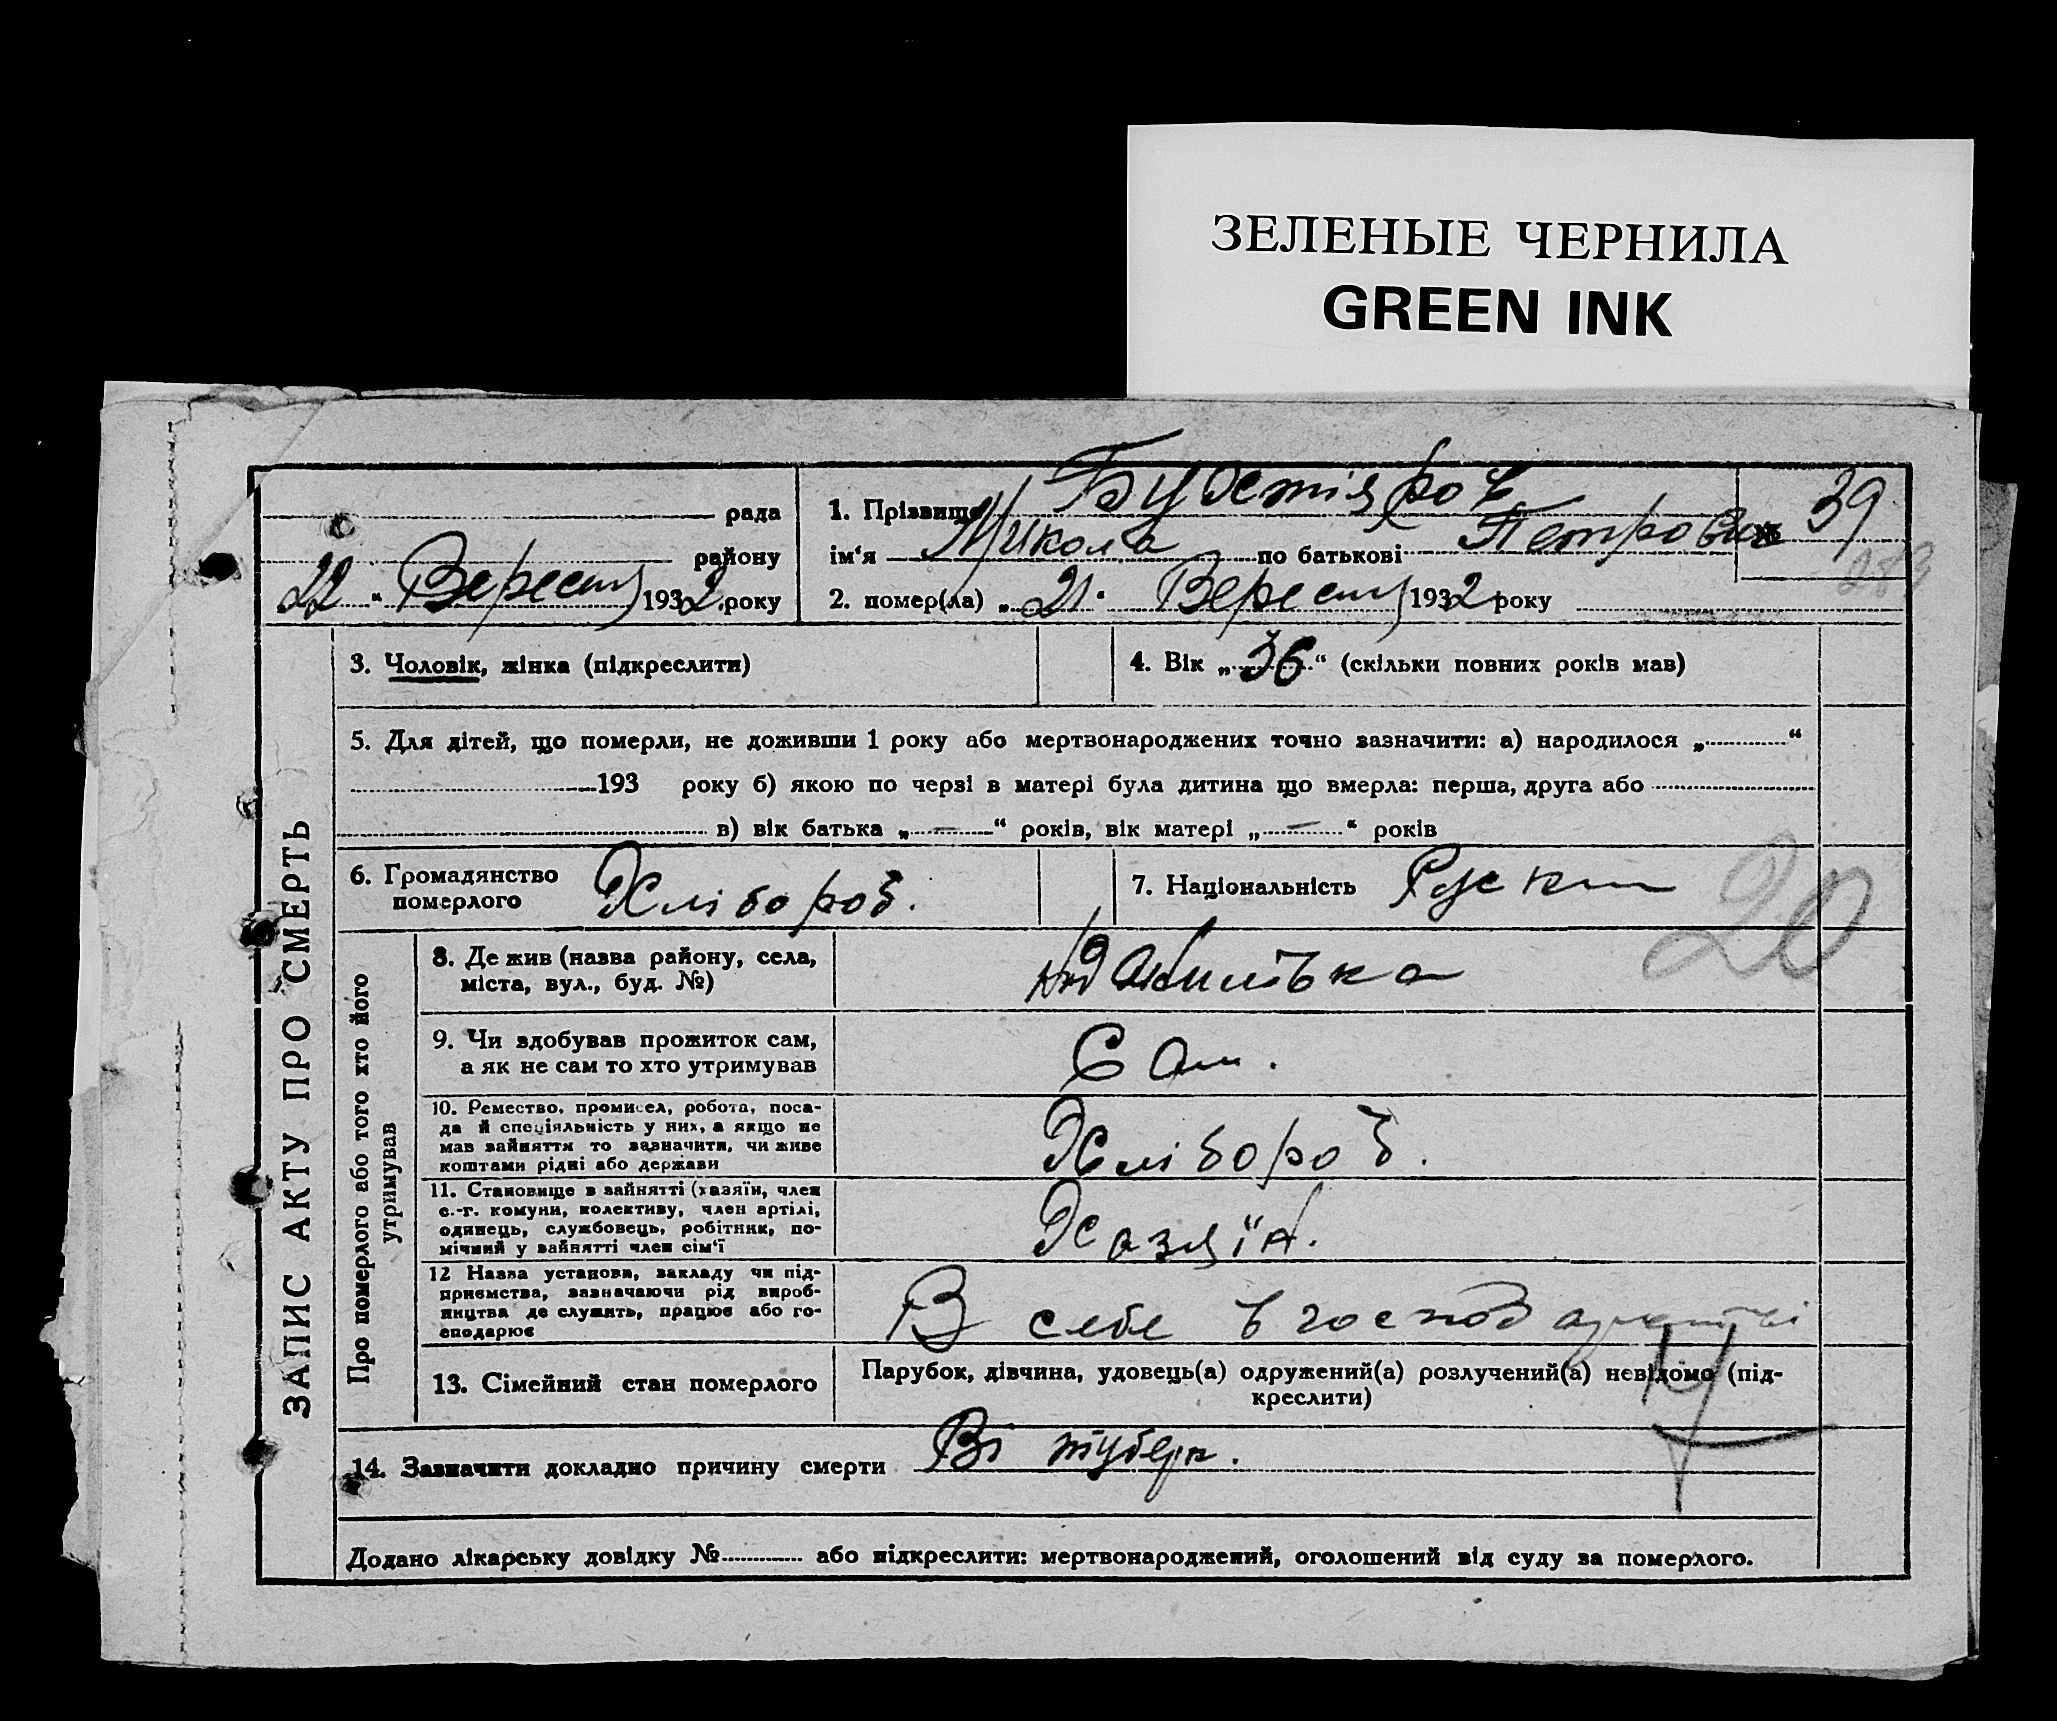 ЗЕЛЕНЫЕ ЧЕРНИЛА
GREEN INK
ЗАПИС АКТУ ПРО СМЕРТЬ
рада
району
22 " Вересня 1932 року
1. Прізвище
39
ім'я Микола по батькові Петрович
2. помер(ла) „ 21 " Вересня 1932 року
3. Чоловік, жінка (підкреслити)
4. Вік „ 36 “ (скільки повних років мав)
5. Для дітей, що померли, не доживши 1 року або мертвонароджених точно зазначити: а) народилося „ “
193 року б) якою по черзі в матері була дитина що вмерла: перша, друга або
в) вік батька „ — “ років, вік матері „ — “ років
6. Громадянство
померлого
Хлібороб.
7. Національність
20
Про померлого або того хто його
утримував
8. Де жив (назва району, села,
міста, вул., буд. №)
9. Чи здобував прожиток сам,
а як не сам то хто утримував
Сам.
10. Ремество, промисел, робота, поса-
да й спеціяльність у них, а якщо не
мав зайняття то зазначити, чи живе
коштами рідні або держави
Хлібороб.
11. Становище в зайнятті (хазяїн, член
с.-г. комуни, колективу, член артілі,
одинець, службовець, робітник, по-
мічний у зайнятті член сім'ї
Хазяїн.
12 Назва установи, закладу чи під-
приємства, зазначаючи рід вироб-
ництва де служить, працює або го-
сподарює
В себе в господарстві
13. Сімейний стан померлого
Парубок, дівчина, удовець(а) одружений(а) розлучений(а) невідомо (під-
креслити)
14. Зазначити докладно причину смерти Ві туберк.
Додано лікарську довідку № або підкреслити: мертвонароджений, оголошений від суду за померлого.